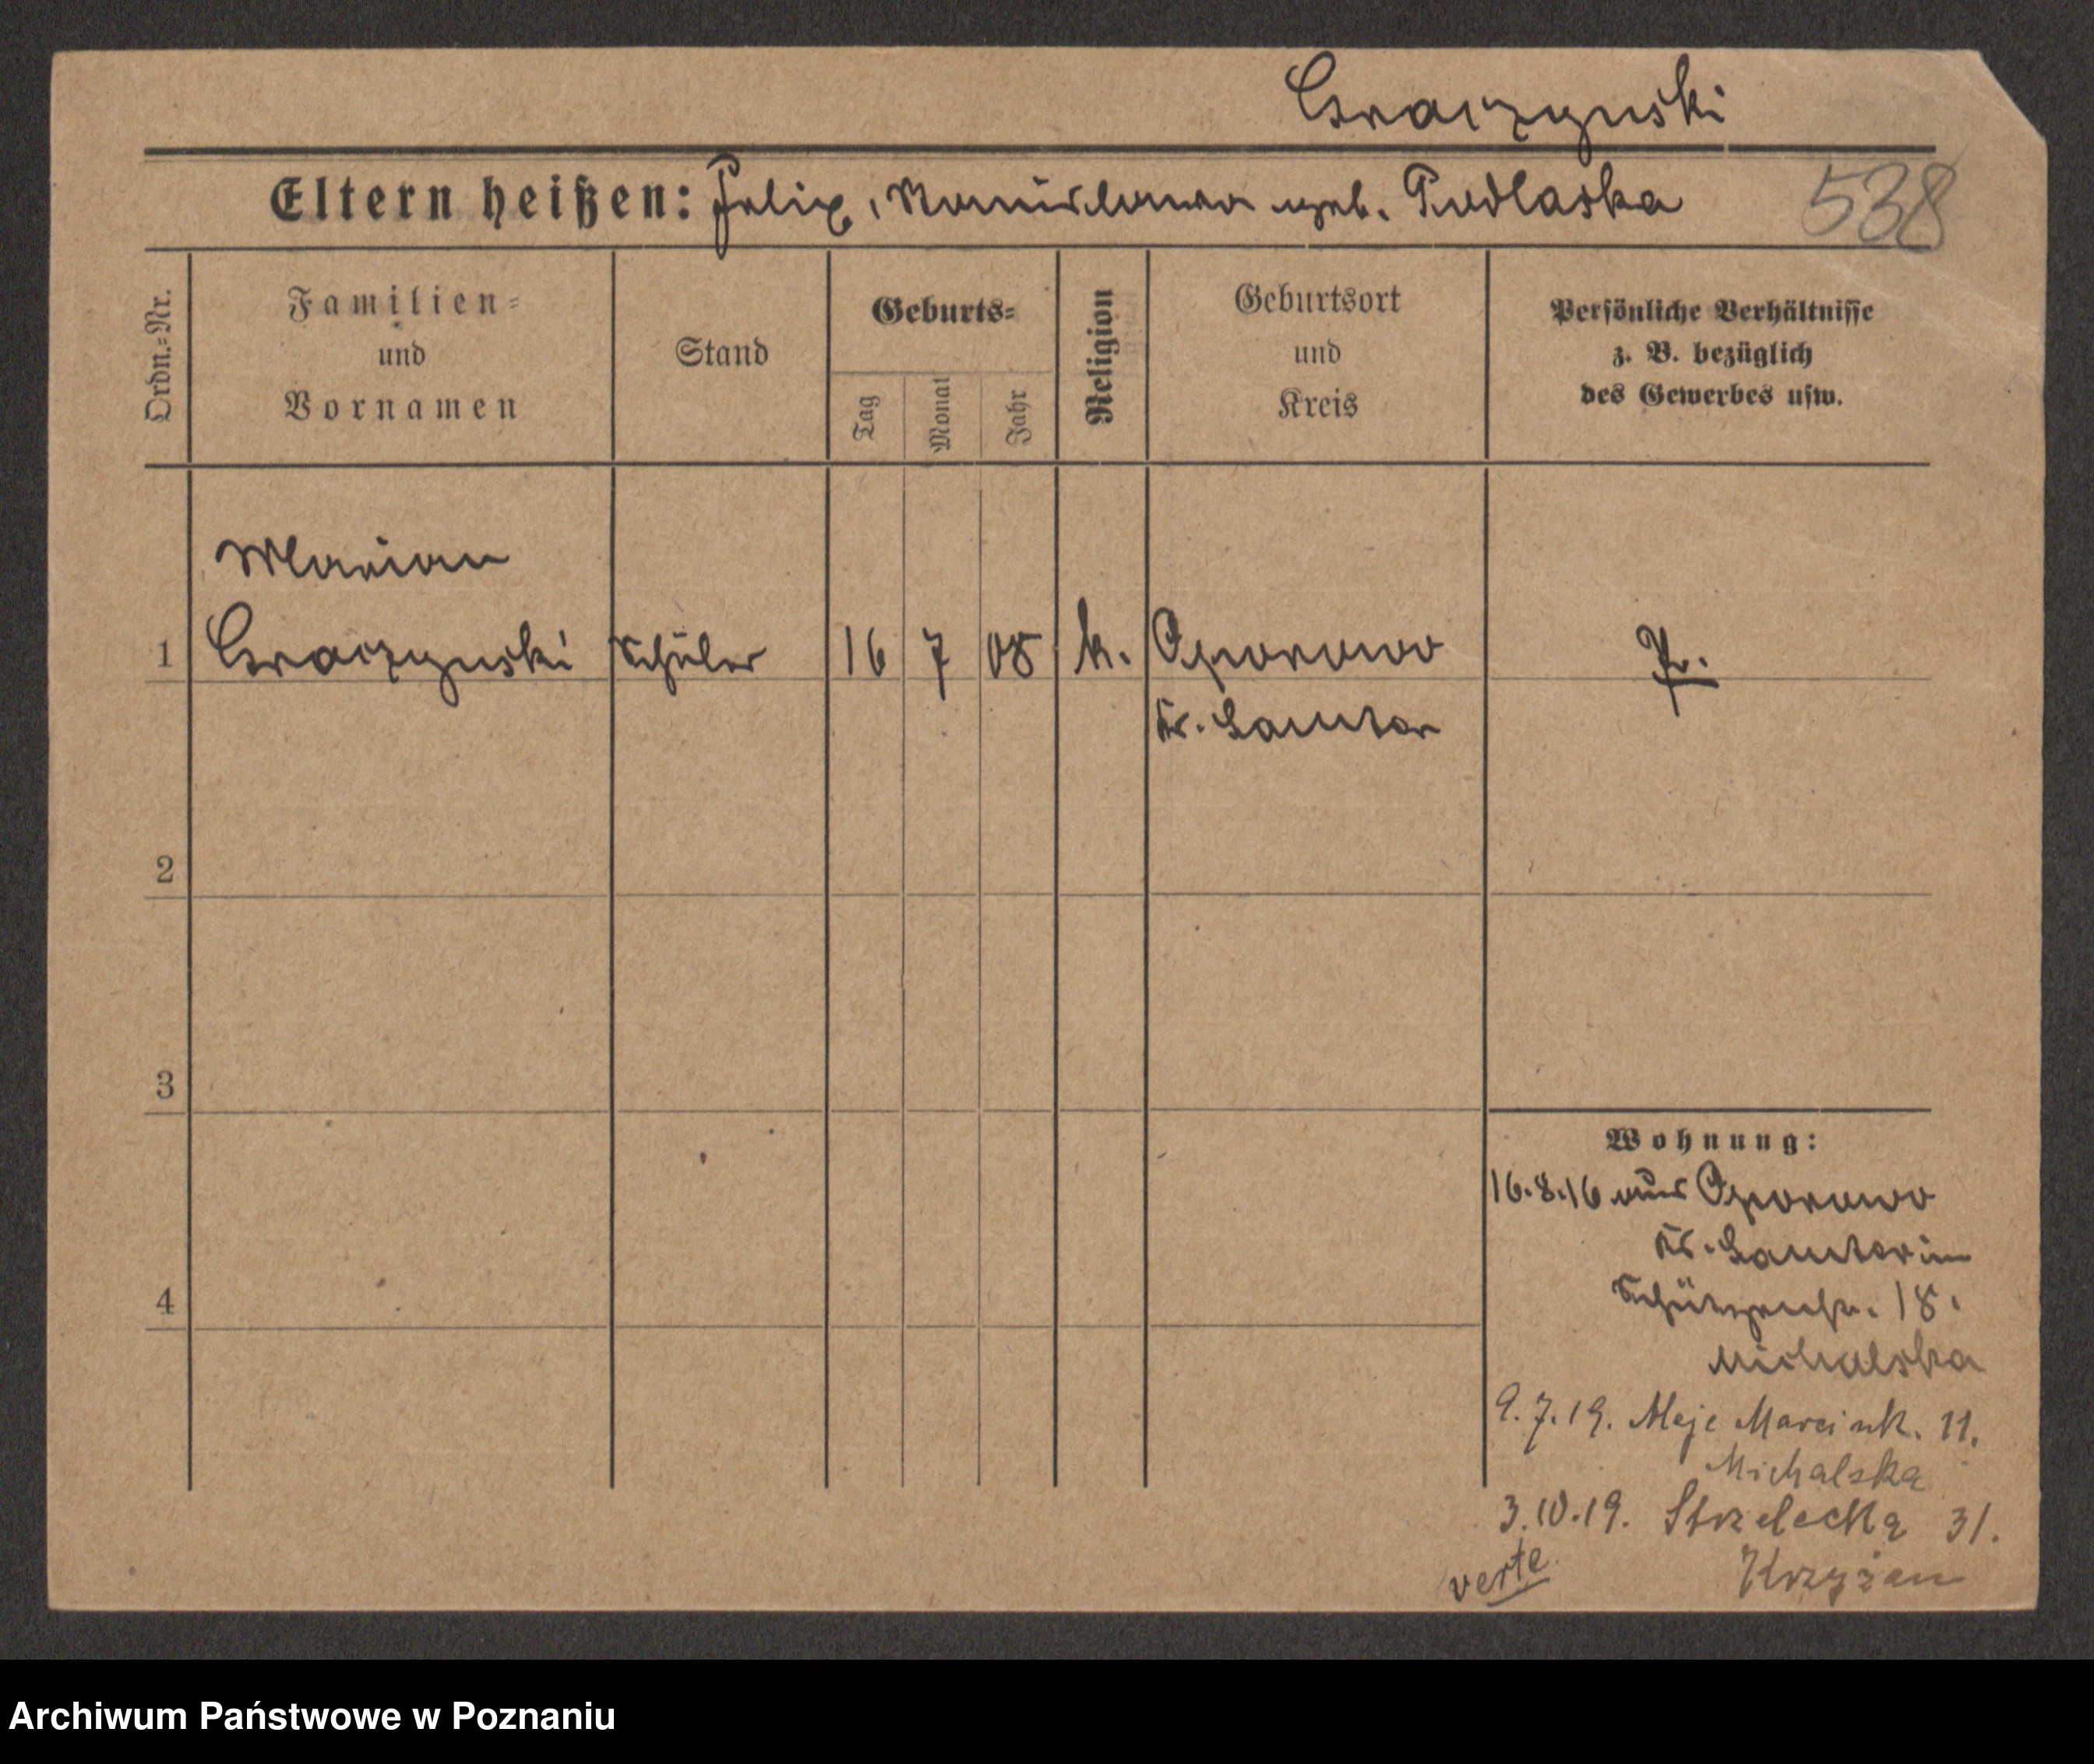 Graczynski
Eltern heißen: Felix, Stanislawa geb. Podlaska
538
Ordn.-Nr.
Familien-
und
Vornamen
Stand
Geburts-
Tag
Monat
Jahr
Religion
Geburtsort
und
Kreis
Persönliche Verhältnisse
z. B. bezüglich
des Gewerbes usw.
Marian
1 Graczynski Schüler 16 7 08 k. Oporowo Pr.
Kr. Samter
2
3
4
Wohnung:
16.8.16 aus Oporowo
Kr. Samter in
Schützenstr. 18.
Michalska
9.7.19. Aleje Marcink. 11.
Michalska
3.10.19. Strzelecka 31.
Krzyżan
verte
Archiwum Państwowe w Poznaniu